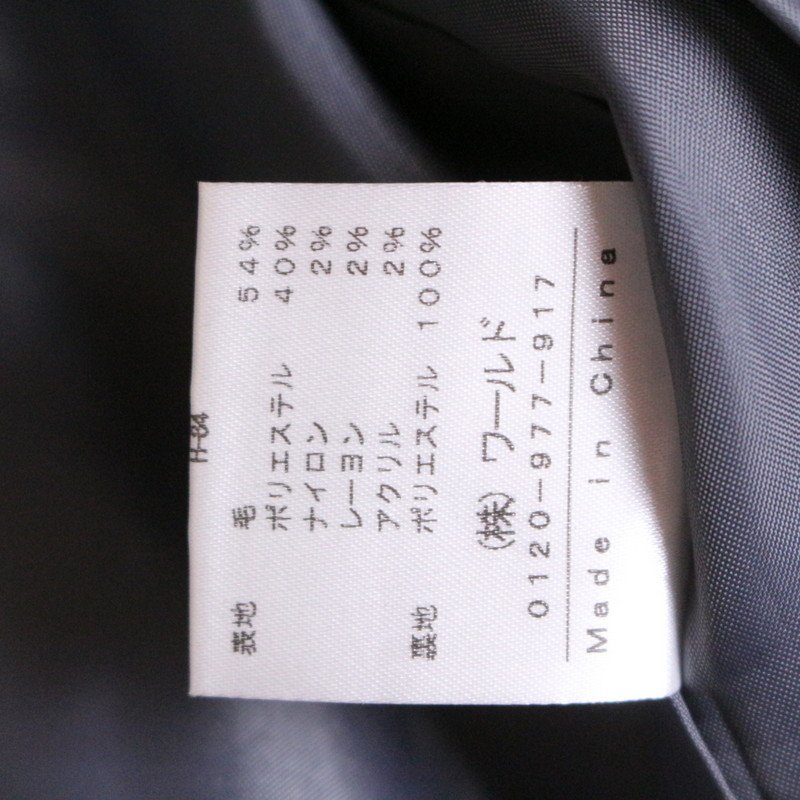 H-84
表地 毛 54%
ポリエステル 40%
ナイロン 2%
レーヨン 2%
アクリル 2%
裏地 ポリエステル 100%
(株)ワールド
0120-977-917
Made in China